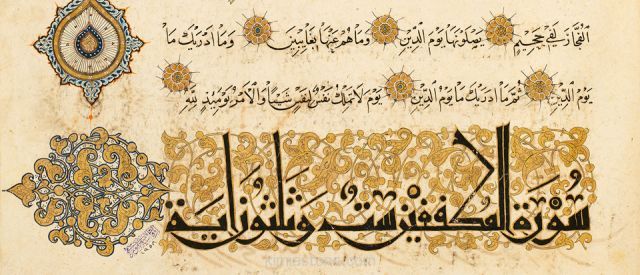 الفُجَّارَ لَفِي جَحِيمٍ يَصْلَوْنَهَا يَوْمَ الدِّينِ وَمَا هُمْ عَنْهَا بِغَائِبِينَ وَمَا أَدْرَىٰكَ مَا
يَوْمُ الدِّينِ ثُمَّ مَا أَدْرَىٰكَ مَا يَوْمُ الدِّينِ يَوْمَ لَا تَمْلِكُ نَفْسٌ لِنَفْسٍ شَيْئًا وَالْأَمْرُ يَوْمَئِذٍ لِلَّهِ
سُورَةُ المطففين ست وثلثون آية